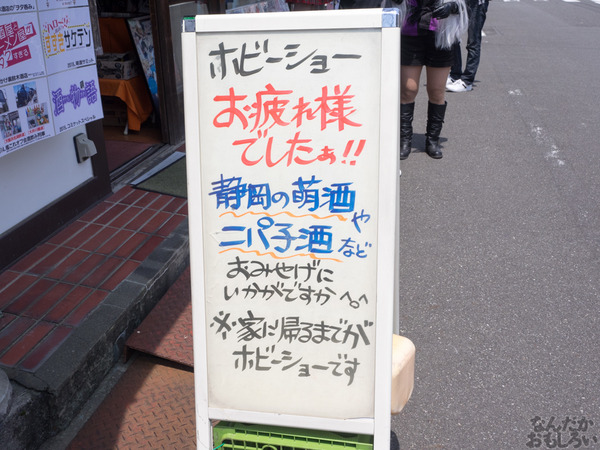 ホビーショー
お疲れ様
でしたぁ!!
静岡の萌酒や
ニパ子酒など
おみやげに
いかがですか^o^
※家に帰るまでが
ホビーショーです
なんだか
おもしろい